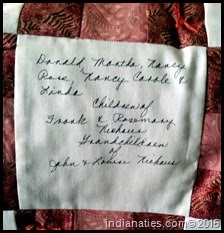 Donald, Martha, Nancy
Rose, Nancy Carole &
Linda
Children of
Frank & Rosemary
Niehaus
Grandchildren
of
John & Louise Niehaus
indianaties.com©2015